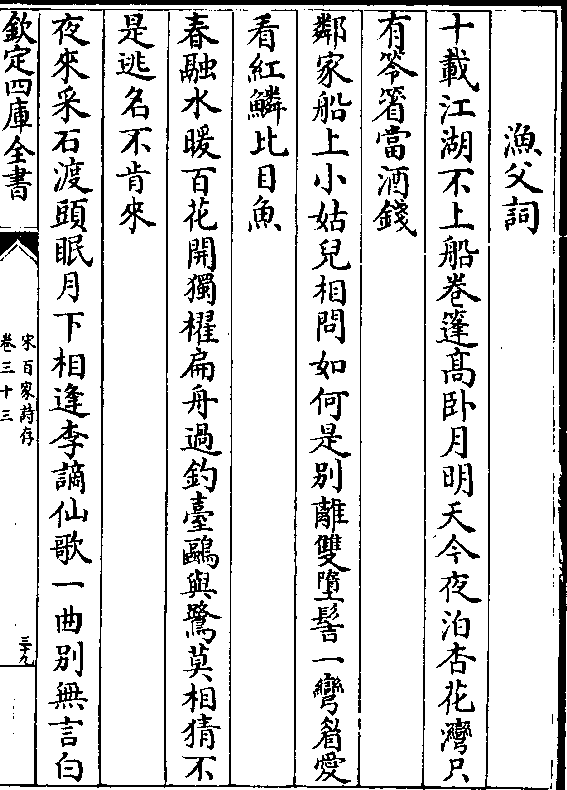 漁父詞
十載江湖不上船卷篷髙卧月明天今夜泊杏花灣只
有笭箵當酒錢
鄰家船上小姑兒相問如何是别離雙墮髻一彎眉愛
看紅鱗比目魚
春融水暖百花開獨櫂扁舟過釣臺鷗與鷺莫相猜不
是逃名不肯來
夜來采石渡頭眠月下相逢李謫仙歌一曲别無言白
欽定四庫全書
宋百家詩存
卷三十三
三十九